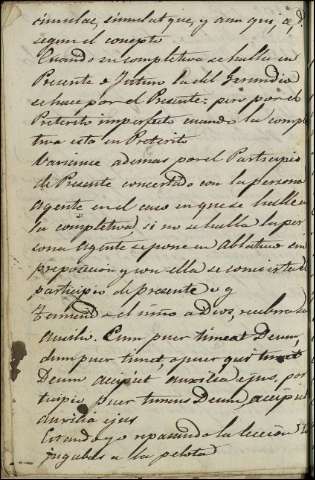 simulac, simul atque, y aun qui, a, d
segun el concepto
Cuando su completiva se halla en
Presente o futuro la del Gerundio
se hace por el Presente; pero por el
Preterito imperfecto cuando la comple
tiva esta en Preterito
Variance ademas por el Participio
de Presente concertado con la persona
Agente en el caso en que se halle en
la completiva, si no se halla la per
sona agente se pone en ablativo sin
preposicion y con ella se concierta el
participio de presente v g
Temiendo el niño a Dios, recibira su
auxilio. Cum puer timeat Deum,
dum puer timet, o puer qui timet
Deum accipiet auxilia ejus, por
ticipio puer timens Deum, accipiet
auxilia ejus
Estando yo repasando la leccion tu
jugabas a la pelota